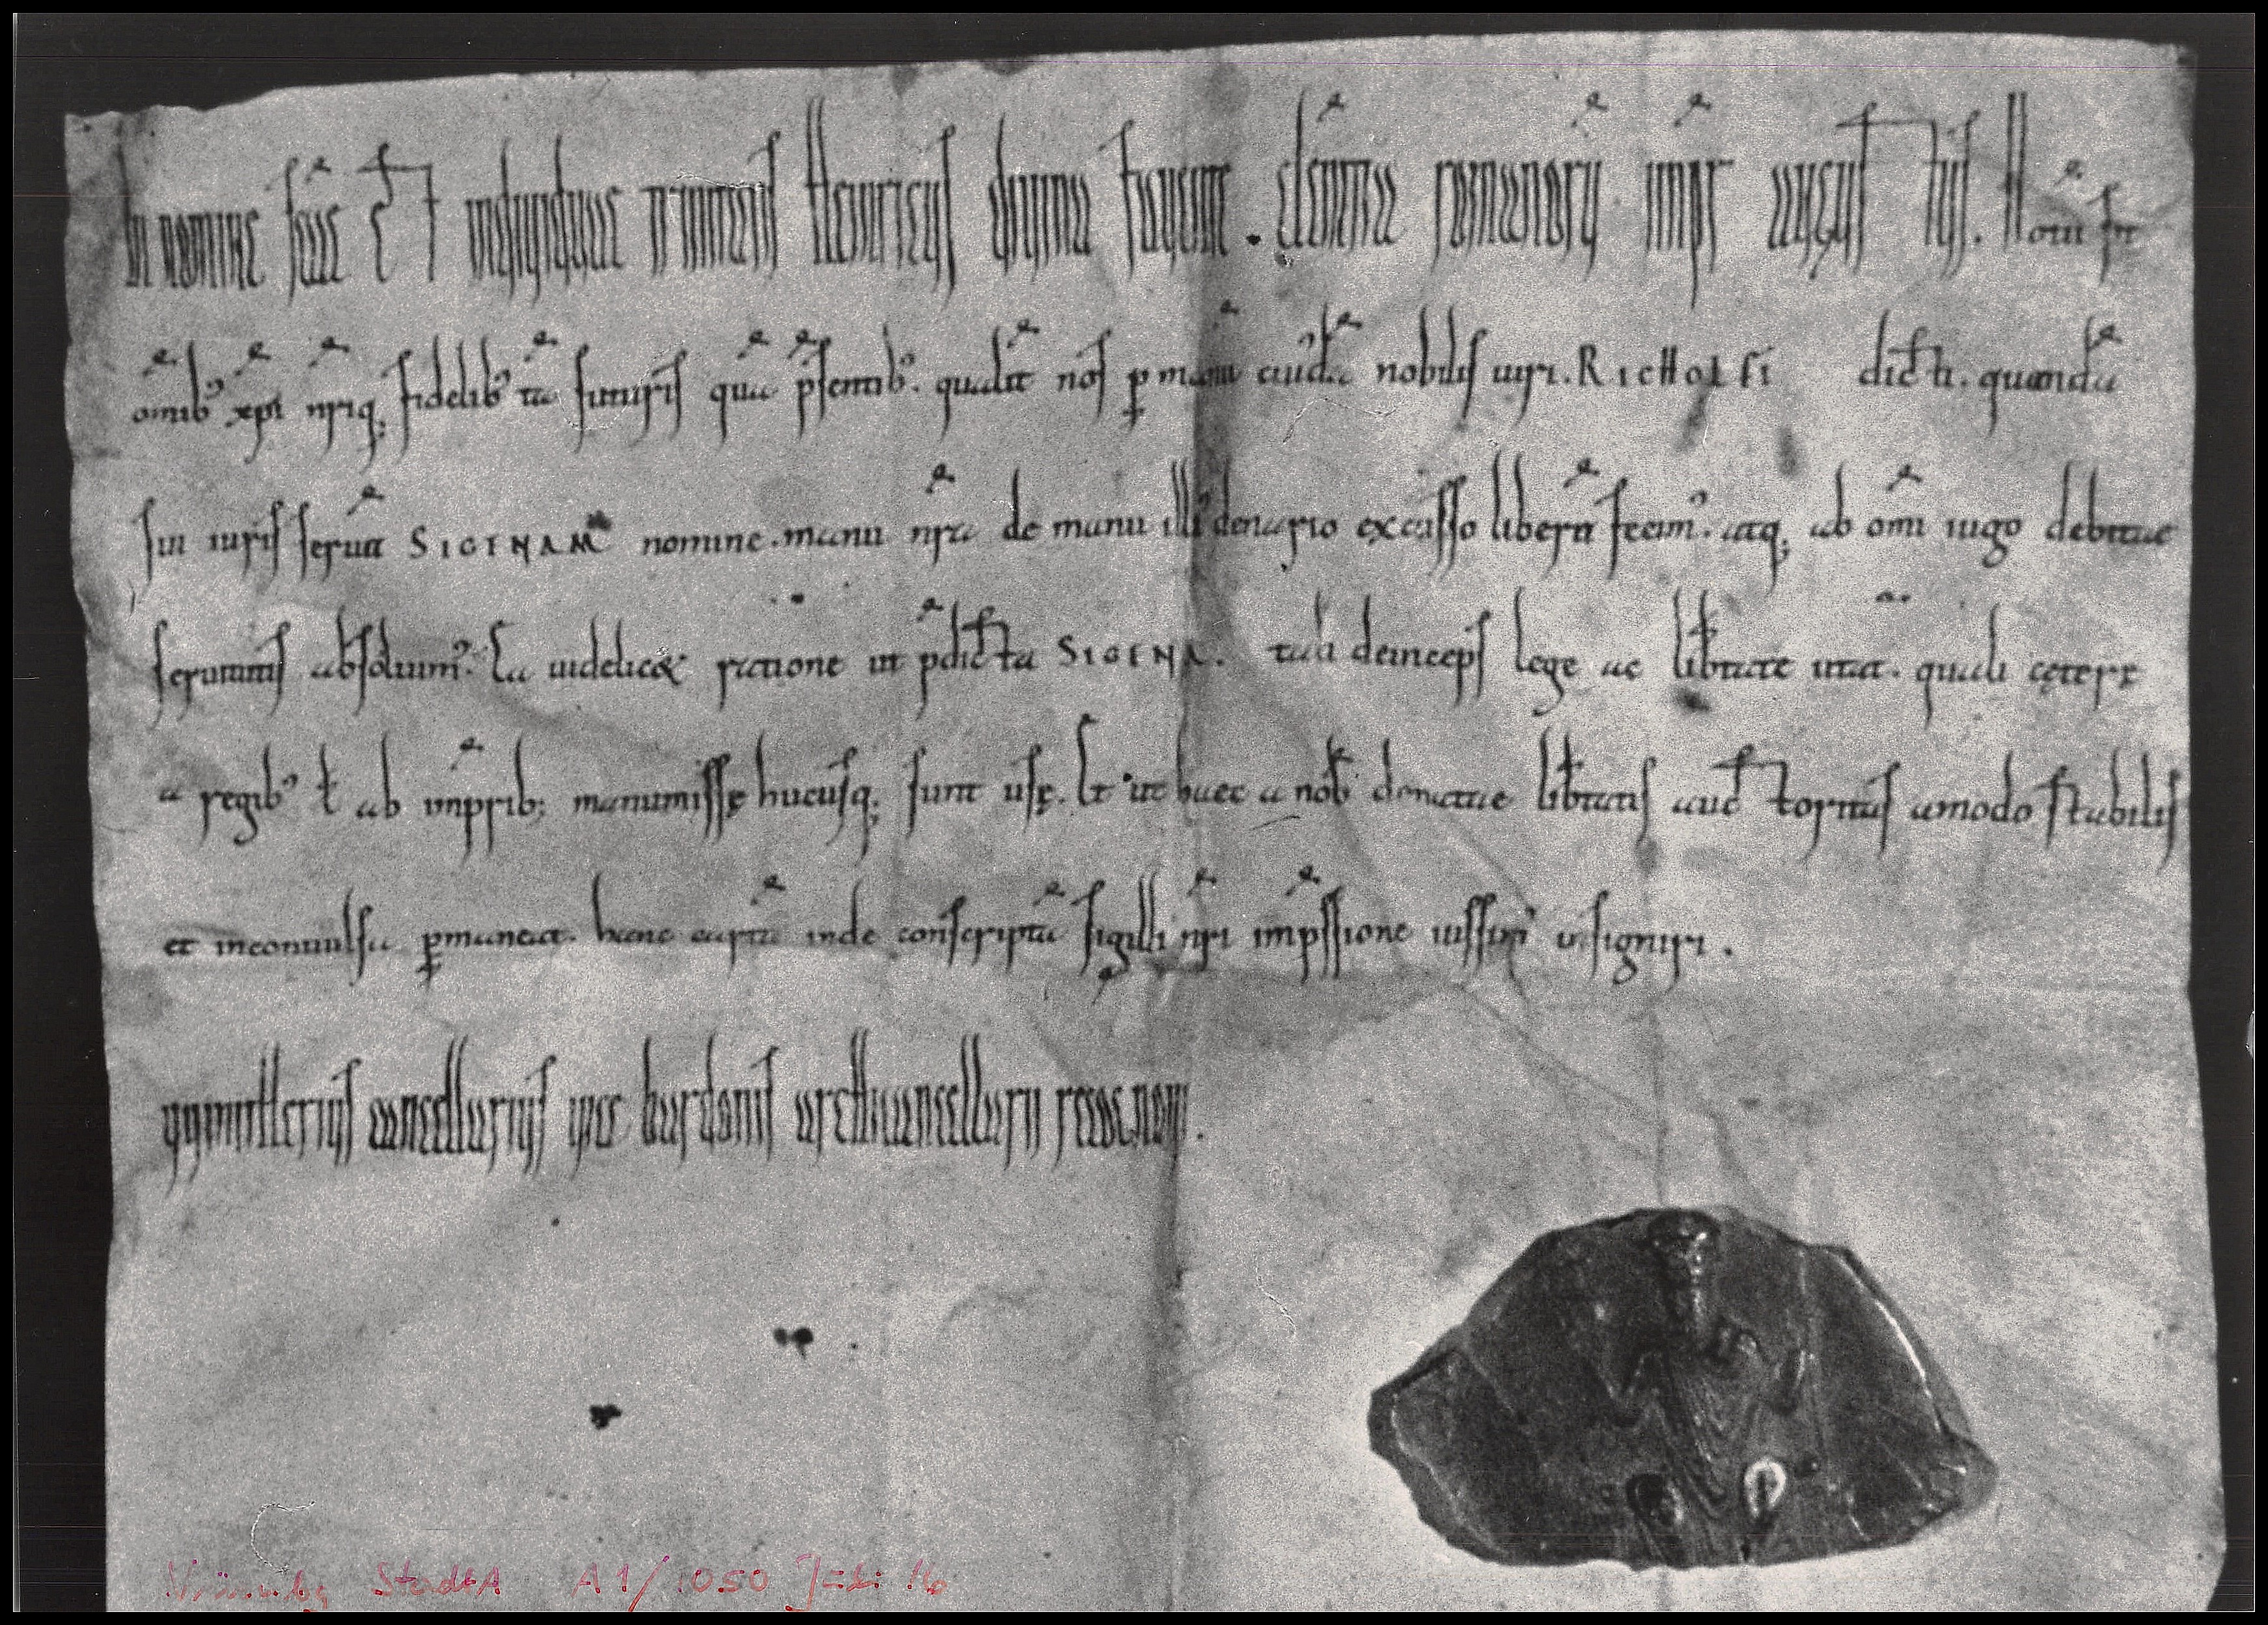 In nomine scae et indiuiduae trinitatis Heinricus diuina fauente . clementia romanoru impr augustus . Notu sit
omib xpi nriq; fidelib ta futuris qua psentib . qualit nos p manu cuiusda nobilis uiri . RICHOLFI dicti . quanda
sui iuris serua SIGENAM nomine . manu nra de manu illi denario excusso libera fecim . atq; ab omi iugo debitae
seruitutis absoluim . Ea uidelicet ratione ut pdicta SIGENA . tali deinceps lege ac libtate utat . quali cętere
a regib ł ab imprib; manumissę hucusq; sunt usę . Et ut haec a nob donatae libtatis auctoritas amodo stabilis
et inconuulsa pmaneat . hanc carta inde conscripta sigilli nri impssione iussim insigniri .
uuinitherius cancellarius uice bardonis archicancellarii recognoui .
StadtA A 1 / 1050 Juli 16